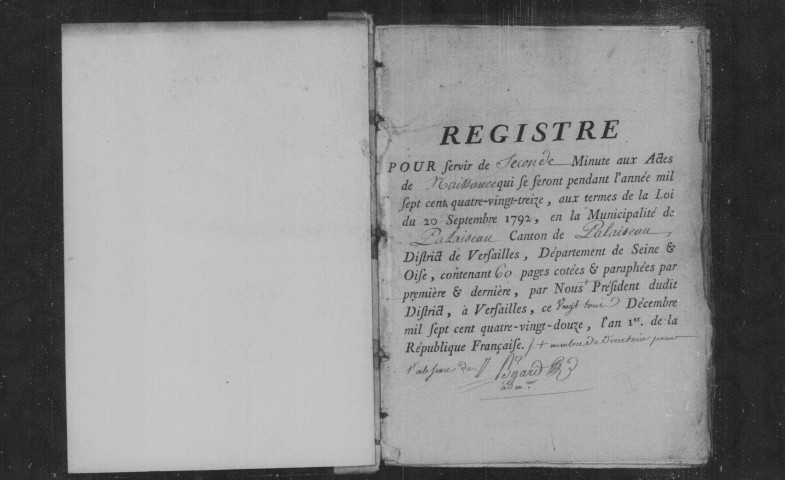 REGISTRE
POUR servir de Seconde Minute aux Actes
de Naissance qui se feront pendant l'année mil
sept cent quatre-vingt-treize, aux termes de la Loi
du 20 Septembre 1792, en la Municipalité de
Palaiseau Canton de Palaiseau,
District de Versailles, Département de Seine &
Oise, contenant 60 pages cotées & paraphées par
première & dernière, par Nous + Président dudit
District, à Versailles, ce vingt trois Décembre
mil sept cent quatre-vingt-douze, l'an 1er. de la
République Française. / + membre du Directoire pour
l'absence du P